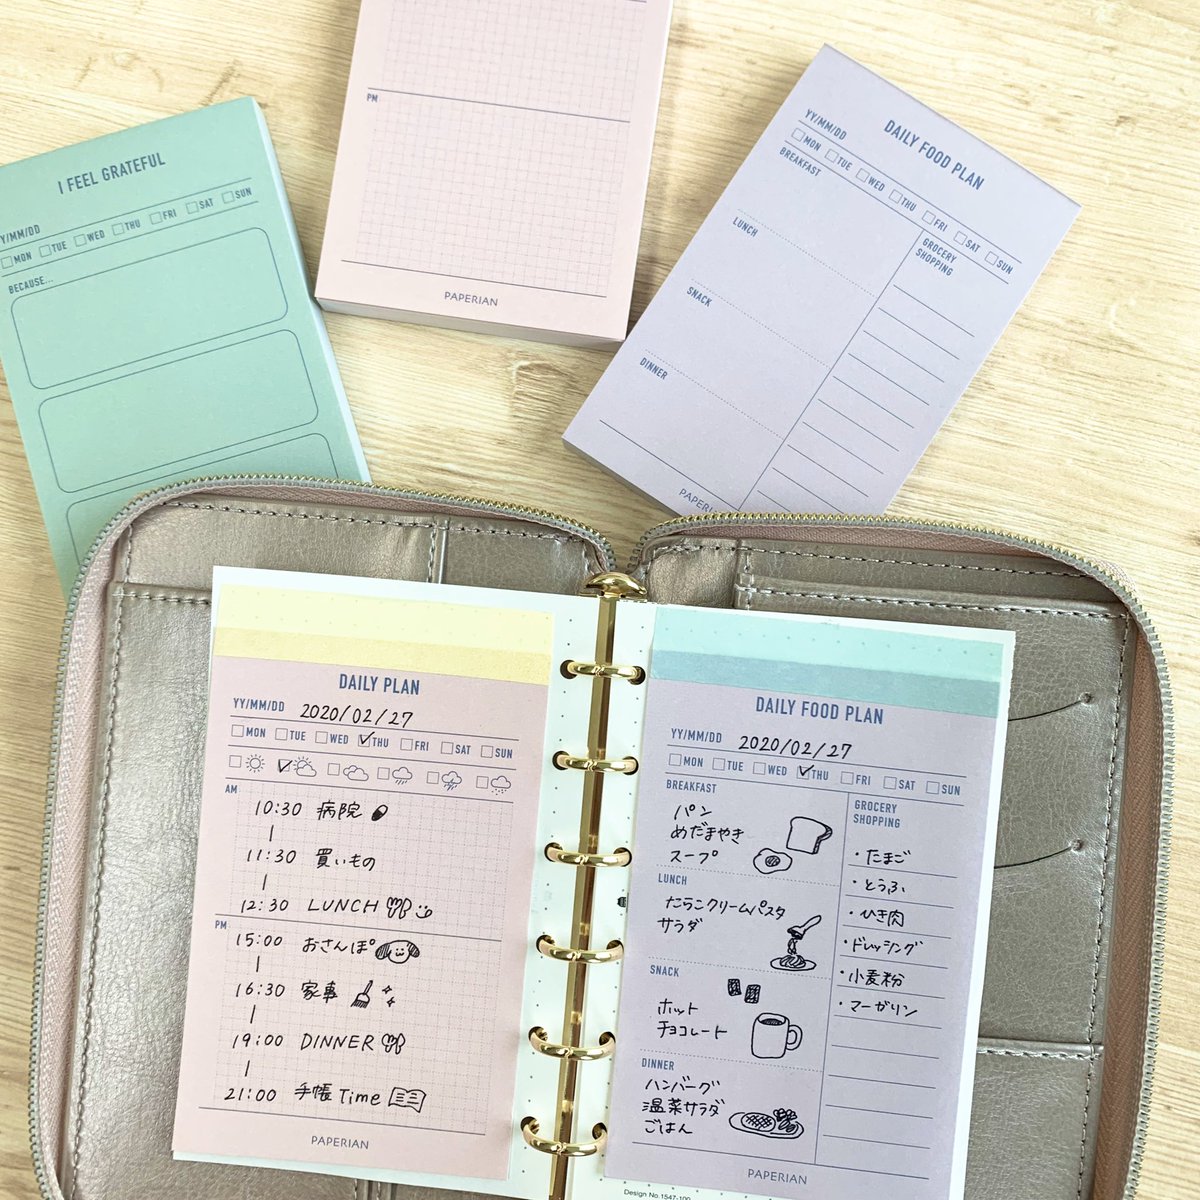 I FEEL GRATEFUL
YY/MM/DD
MON TUE WED THU FRI SAT SUN
BECAUSE...
PM
PAPERIAN
DAILY FOOD PLAN
YY/MM/DD
MON TUE WED THU FRI SAT SUN
BREAKFAST
LUNCH
SNACK
DINNER
GROCERY
SHOPPING
PAPERIAN
DAILY PLAN
YY/MM/DD 2020/02/27
MON TUE WED THU FRI SAT SUN
AM
10:30 病院
11:30 買いもの
12:30 LUNCH
PM
15:00 おさんぽ
16:30 家事
19:00 DINNER
21:00 手帳Time
PAPERIAN
DAILY FOOD PLAN
YY/MM/DD 2020/02/27
MON TUE WED THU FRI SAT SUN
BREAKFAST
パン
めだまやき
スープ
LUNCH
たらこクリームパスタ
サラダ
SNACK
ホット
チョコレート
DINNER
ハンバーグ
温菜サラダ
ごはん
GROCERY
SHOPPING
・たまご
・とうふ
・ひき肉
・ドレッシング
・小麦粉
・マーガリン
PAPERIAN
Design No.1547-100